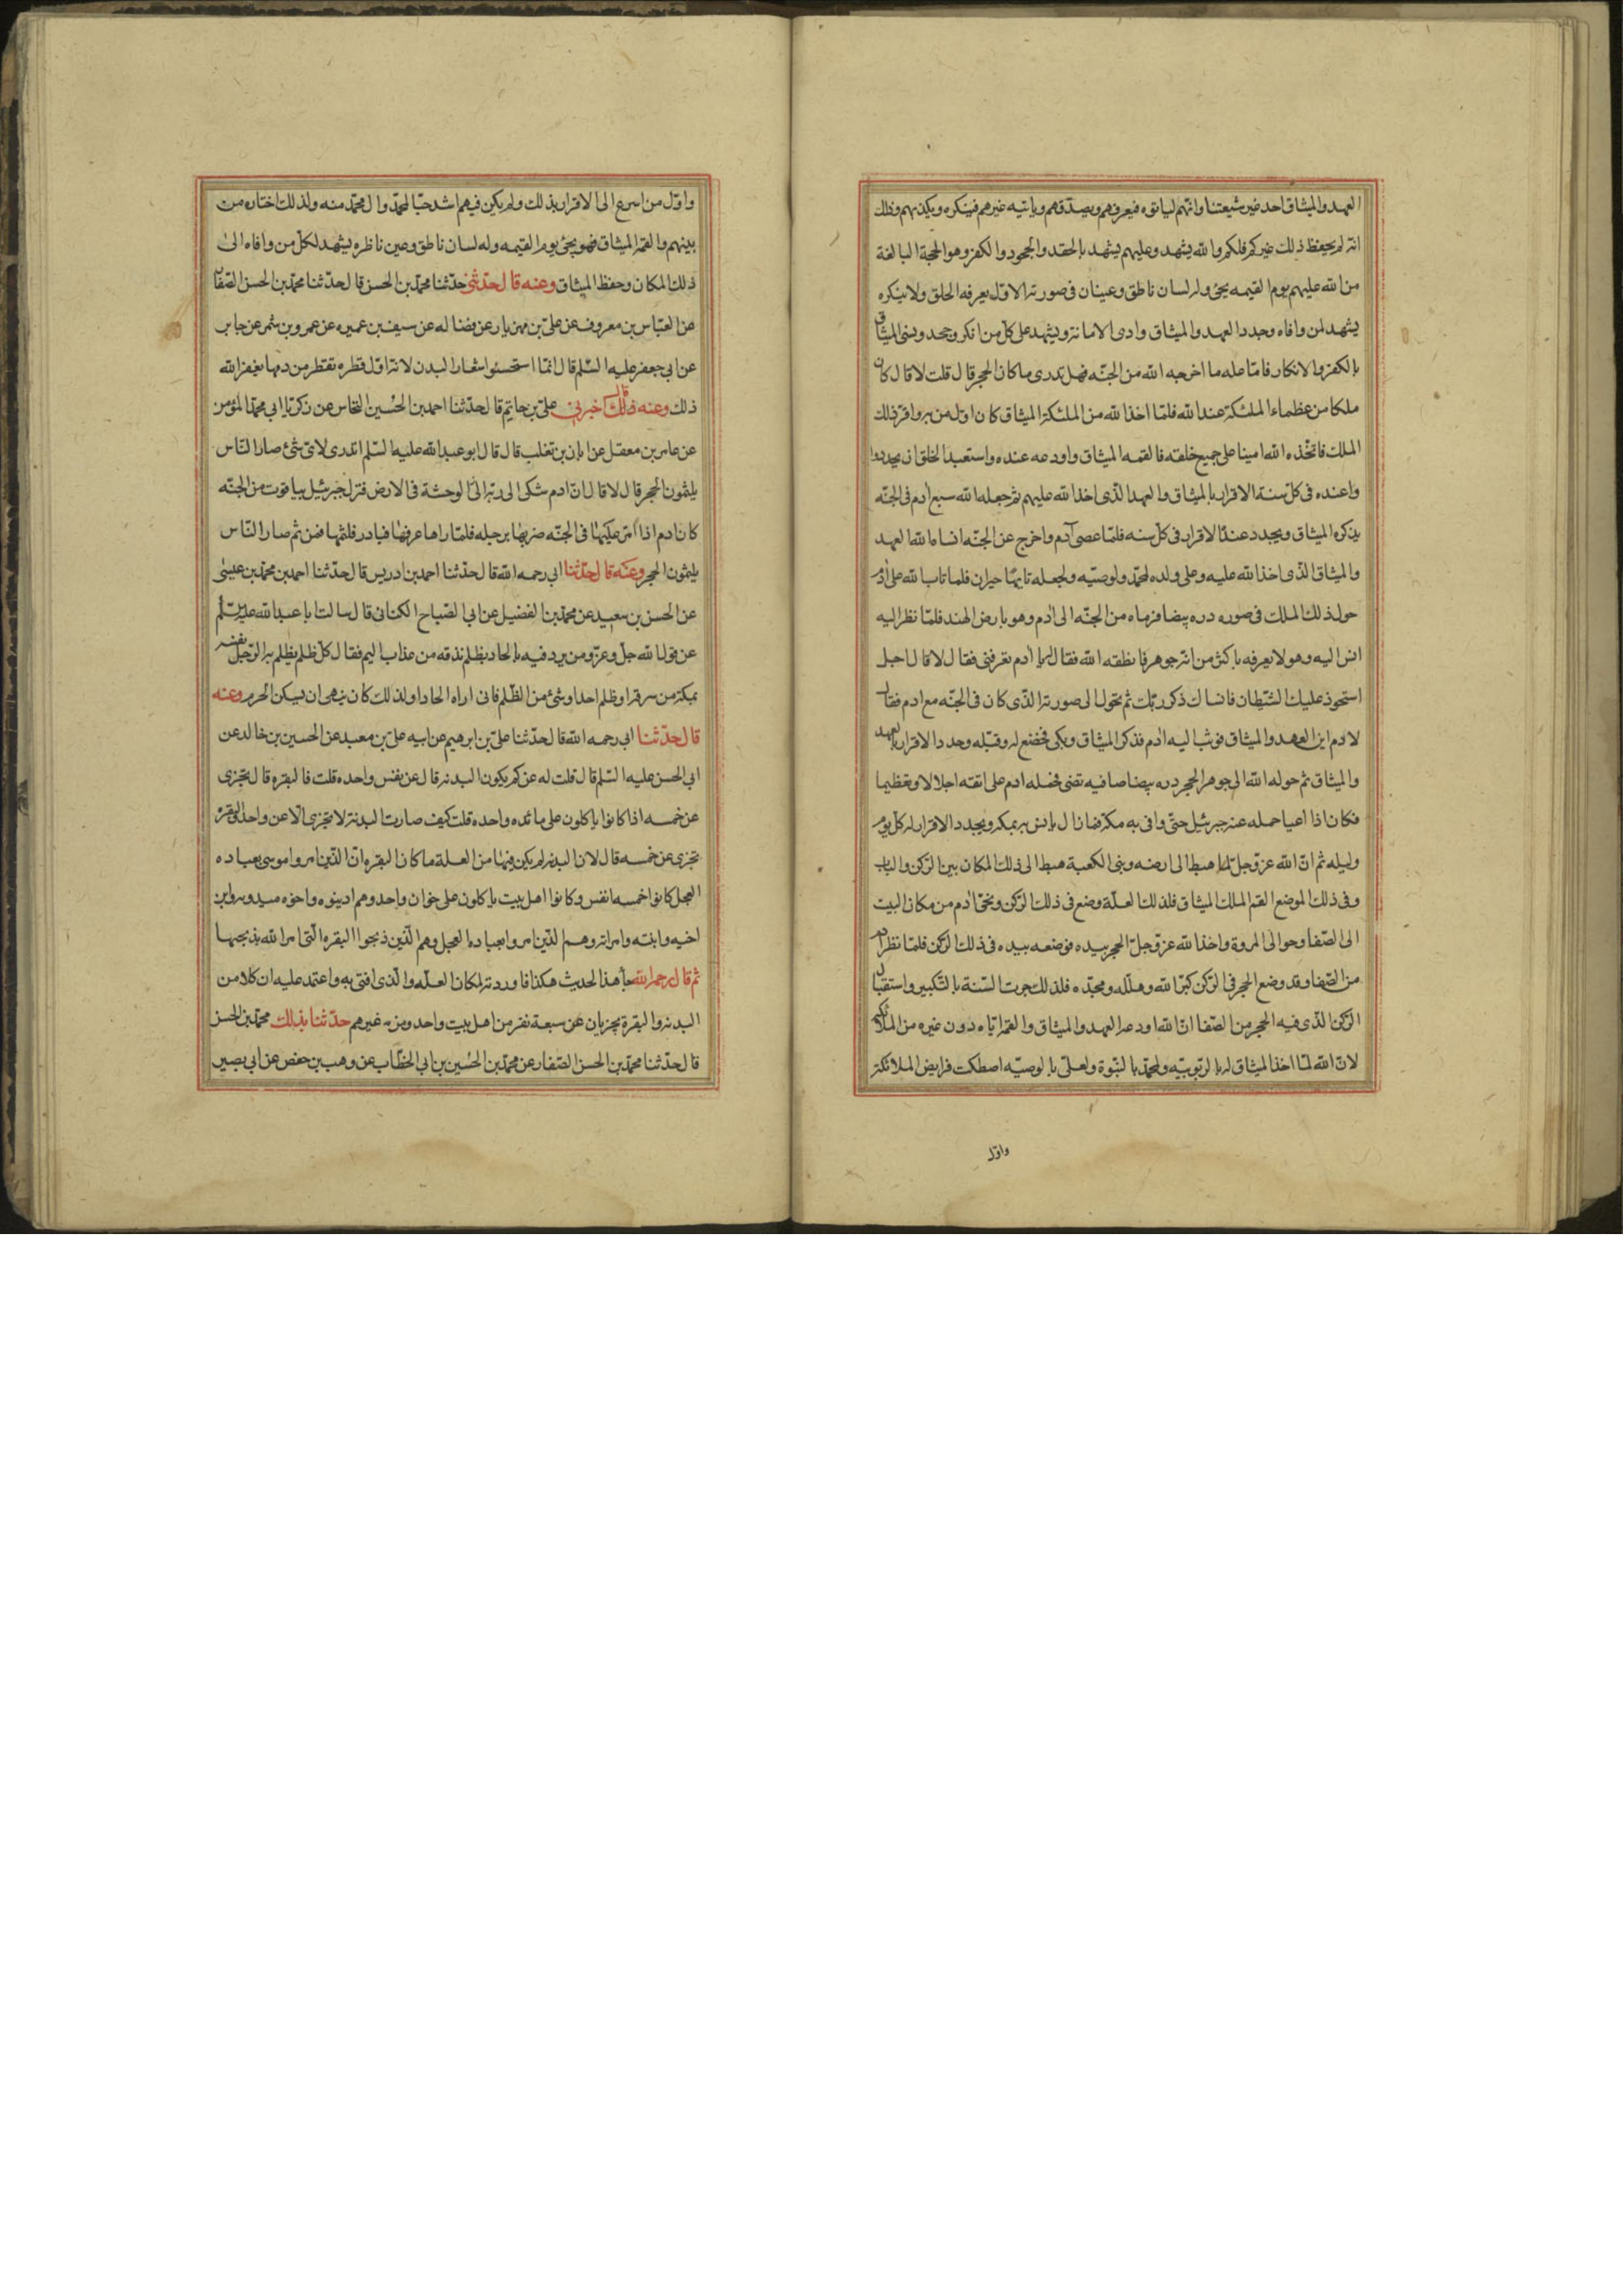 العهد والميثاق احد غير شيعتنا وانهم لياتوه فيعرفهم ويصدقهم وياتيه غيرهم فينكره ويكذبهم وذلك
انه لم يحفظ ذلك غيركم فلكم والله يشهد وعليهم يشهد بالحقد والجحود والكفر وهو الحجة البالغة
من الله عليهم يوم القيمه يجئ وله لسان ناطق وعينان فى صورته الاول يعرفه الخلق ولا ينكره
يشهد لمن وافاه وجدد العهد والميثاق وادى الامانة ويشهد على كل من انكر وجحد ونسى الميثاق
بالكفر والانكار فاما عله ما اخرجه الله من الجنه فهل تدرى ما كان الحجر قال قلت لا قال كان
ملكا من عظماء الملئكة عند الله فلما اخذ الله من الملئكة الميثاق كان اول من به واقر ذلك
الملك فاتخذه الله امينا على جميع خلقه فالقمه الميثاق واودعه عنده واستعبد الخلق ان يجددوا
واعنده فى كل سنة الاقرار بالميثاق والعهد الذى اخذ الله عليهم ثم جعله الله مع ادم فى الجنه
يذكره الميثاق ويجدد عنده الاقرار فى كل سنه فلما عصى آدم واخرج عن الجنه انساه الله العهد
والميثاق الذى اخذ الله عليه وعلى ولده لمحمد ولوصيه ولجعله تايها حيران فلما تاب الله على ادم
حول ذلك الملك فى صوره دره بيضا فرماه من الجنه الى ادم وهو بارض الهند فلما نظر اليه
انس اليه وهو لا يعرفه باكثر من انه جوهر فانطقه الله فقال له يا ادم تعرفنى فقال لا قال اجل
استحوذ عليك الشيطان فانساك ذكر ربك ثم تحول الى صورته الذى كان فى الجنه مع ادم فقال
لادم اين العهد والميثاق فوثب اليه ادم فذكر الميثاق وبكى فخضع له وقبله وجدد الاقرار بالعهد
والميثاق ثم حوله الله الى جوهر الحجر دره بيضا صافيه تضى فحمله ادم على اتقه اجلالا وتعظيما
فكان اذا اعيا حمله عنه جبرئيل حتى وافى به مكة فما زال يانس به بمكه ويجدد الاقرار له كل يوم
وليله ثم ان الله عز وجل لما هبط الى ارضه وبنى الكعبة هبط الى ذلك المكان بين الركن والباب
وفى ذلك الموضع القم الملك الميثاق فلذلك العلة وضع فى ذلك الركن ونحى ادم من مكان البيت
الى الصفا وحوا الى المروة واخذ الله عز وجل الحجر بيده فوضعه بيده فى ذلك الركن فلما نظر ادم
من الصفا وقد وضع الحجر فى الركن كبر الله وهلله ومجده فلذلك جرت السنة بالتكبير واستقبال
الركن الذى فيه الحجر من الصفا ان الله اودعه العهد والميثاق والقمه اياه دون غيره من الملائكة
لان الله لما اخذ الميثاق له بالربوبيه ولمحمد بالنبوة ولعلى بالوصيه اصطكت فرايض الملائكة
واول
واول من اسرع الى الاقرار بذلك ولم يكن فيهم اشد حبا لمحمد وال محمد منه ولذلك اختاره من
بينهم والقمه الميثاق فهو يجئ يوم القيمه وله لسان ناطق وعين ناظره يشهد لكل من وافاه الى
ذلك المكان وحفظ الميثاق وعنه قال حدثنى حدثنا محمد بن الحسن قال حدثنا محمد بن الحسن الصفار
عن العباس بن معروف عن على بن مهزيار عن فضاله عن سيف بن عميره عن عمرو بن شمر عن جابر
عن ابى جعفر عليه السلم قال انما استحسنوا اشعار البدن لانه اول قطره تقطر من دمها يغفر الله
ذلك وعنه ذلك قال اخبرنى على بن حاتم قال حدثنا احمد بن الحسين النحاس عن زكريا ابى محمد المؤمن
عن عامر بن معقل عن ابان بن تغلب قال قال ابو عبد الله عليه السلم اتدرى لاى شئ صار الناس
يلثمون الحجر قال لا قال ان ادم شكى الى ربه الى الوحشة فى الارض فنزل جبرئيل بياقوت من الجنه
كان ادم اذا مر عليها فى الجنه ضربها برجله فلما راها عرفها فبادر فلثمها فمن ثم صار الناس
يلثمون الحجر وعنه قال حدثنا ابى رحمه الله قال حدثنا احمد بن ادريس قال حدثنا احمد بن محمد بن عيسى
عن الحسن بن سعيد عن محمد بن الفضيل عن ابى الصباح الكنانى قال سالت ابا عبد الله عليه السلم
عن قول الله جل وعز ومن يرد فيه بالحاد بظلم نذقه من عذاب اليم فقال كل ظلم يظلم به الرجل نفسه
بمكة من سرقه او ظلم احد او شئ من الظلم فانى اراه الحادا ولذلك كان ينهى ان يسكن الحرم وعنه
قال حدثنا ابى رحمه الله قال حدثنا على بن ابرهيم عن ابيه على بن معبد عن الحسين بن خالد عن
ابى الحسن عليه السلم قال قلت له عن كم يكون البدنه قال عن نفس واحده قلت فالبقره قال تجزى
عن خمسه اذا كانوا ياكلون على مائده واحده قلت كيف صارت البدنة لا تجزى الا عن واحد والبقرة
تجزى عن خمسه قال لان البدنه لم يكن فيها من العلة ما كان البقره ان الذين امروا موسى بعباده
العجل كانوا خمسه انفس وكانوا اهل بيت ياكلون على خوان واحد وهم اذينوه واخوه ميذويه وابن
اخيه وابنته وامراته وهم الذين امروا بعباده العجل وهم الذين ذبحوا البقره التى امر الله بذبحها
ثم قال رحمه الله جأ هذا الحديث هكذا فاوردته لمكان العله والذى افتى به واعتمد عليه ان كلا من
البدنه والبقرة يجزيان عن سبعة نفر من اهل بيت واحد ومن غيرهم حدثنا بذلك محمد بن الحسن
قال حدثنا محمد بن الحسن الصفار عن محمد بن الحسين بن ابى الخطاب عن وهب بن حفص عن ابى بصير